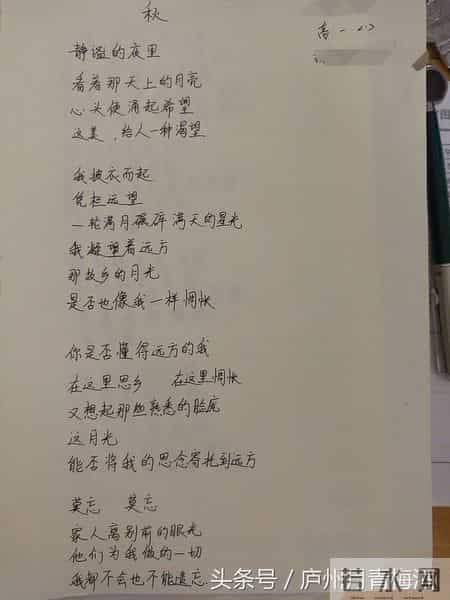 秋
高一(7)
静谧的夜里
看着那天上的月亮
心头便涌起希望
这美，给人一种渴望
我披衣而起
凭栏远望
一轮满月碾碎 满天的星光
我凝望着远方
那故乡的月光
是否也像我一样惆怅
你是否懂得远方的我
在这里思乡 在这里惆怅
又想起那些熟悉的脸庞
这月光
能否将我的思念寄托到远方
莫忘 莫忘
家人离别前的眼光
他们为我做的一切
我都不会也不能遗忘.
头条号／庐州月青海湾
若水网